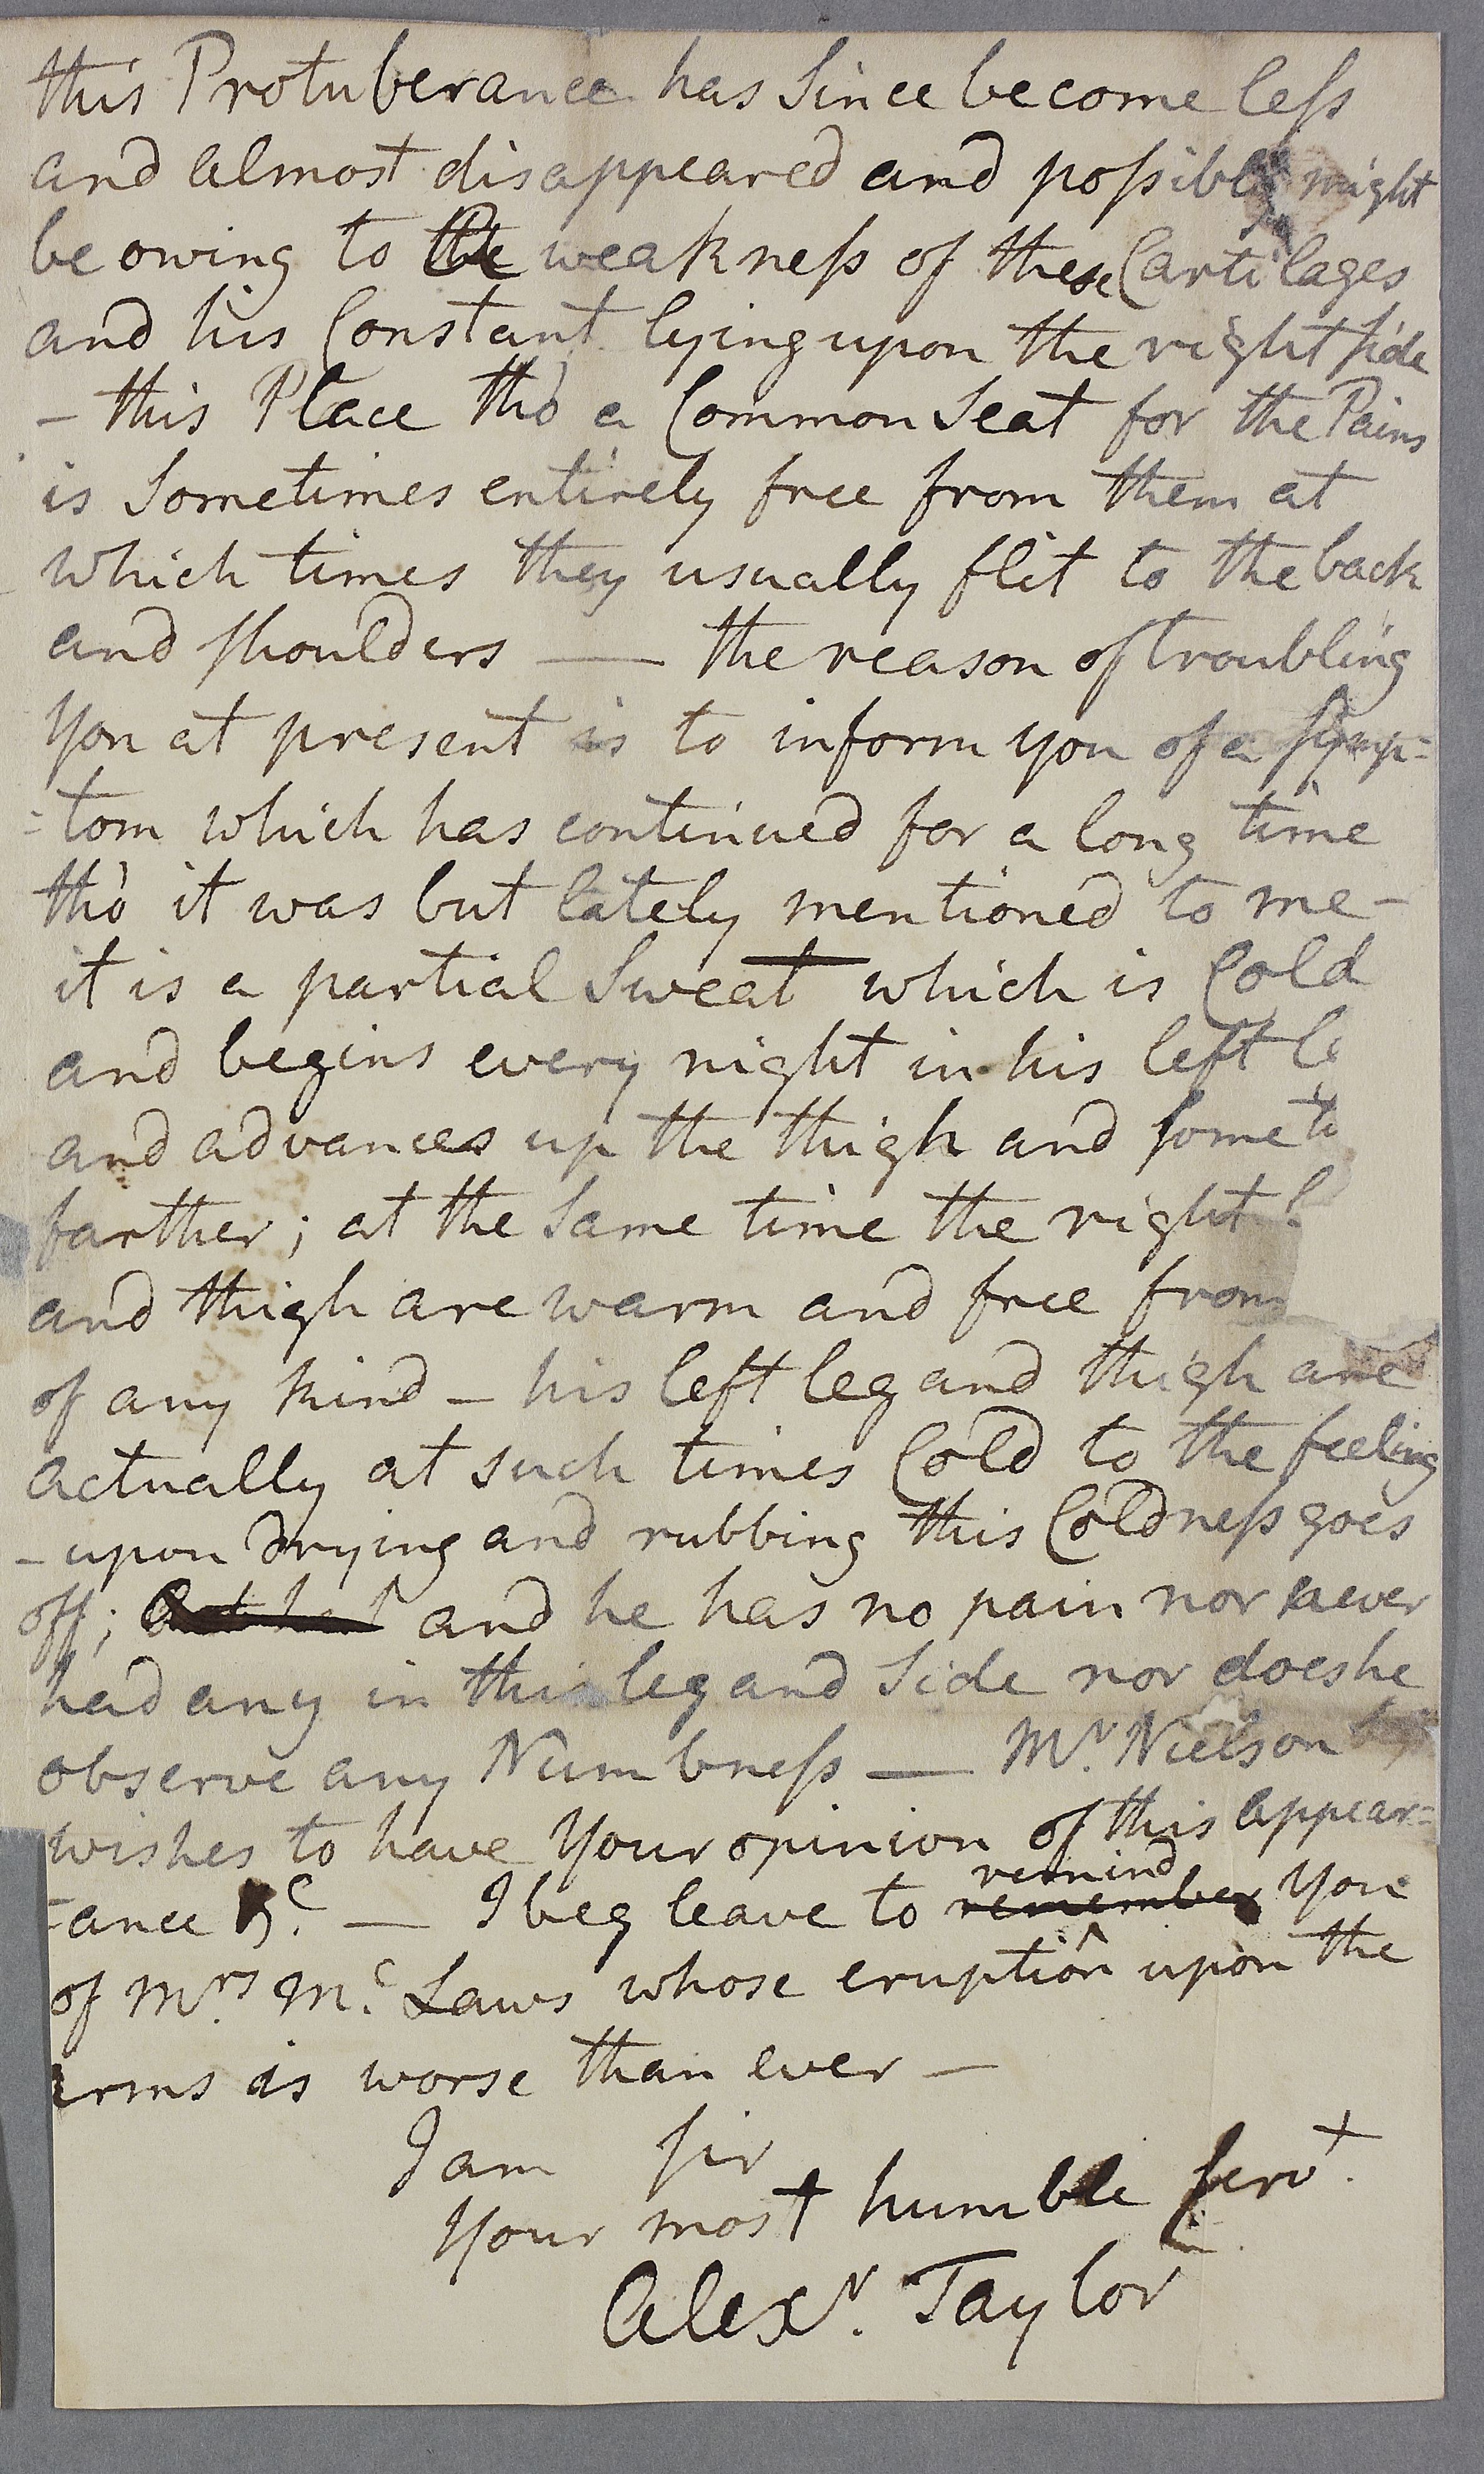 this Protuberance has Since become less
and almost disappeared and possibly might
be owing to the weakness of these Cartilages
and his Constant lying upon the right side
– this Place tho' a Common Seat for the Pains
is Sometimes entirely free from them at
which times they usually flit to the back
and shoulders — the reason of troubling
You at present is to inform you of a symp=
=tom which has continued for a long time
tho' it was but lately mentioned to me –
it is a partial Sweat which is Cold
and begins every night in his left le
and advances up the thigh and someti
farther; at the Same time the right l
and thigh are warm and free from
of any kind – his left leg and thigh are
actually at such times Cold to the feeling
– upon Drying and rubbing this Coldness goes
off; and he has no pain nor never
had any in this leg and Side nor does he
observe any Numbness — Mr. Nielson
wishes to have Your opinion of this appear=
=ance &c. — I beg leave to remember remind You
of Mrs. Mc. Laws whose eruption upon the
arms is worse than ever –
I am sir
Your most humble servt.
Alexr. Taylor